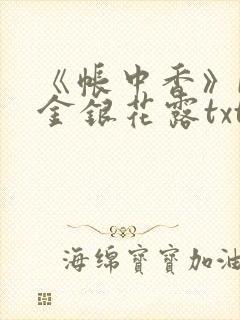 《帐中香》
金银花露txt
海绵寶寶加油